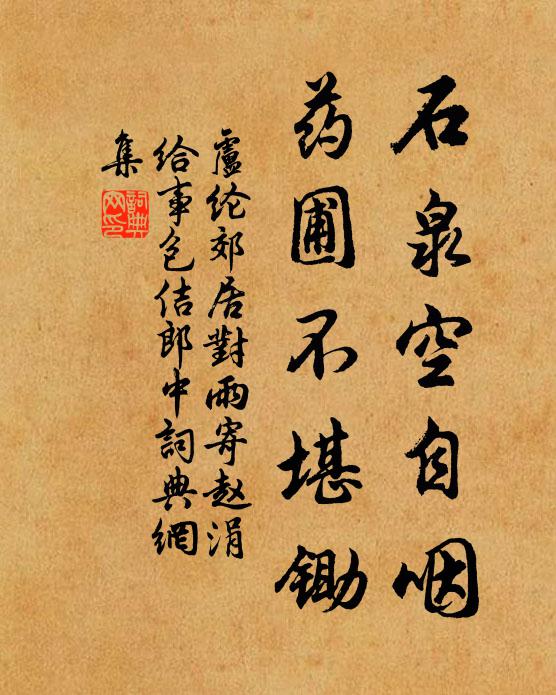 石泉空自咽
药圃不堪锄
盧纶郊居對雨寄赵涓
给事包佶郎中詞典網
集
詞典网印